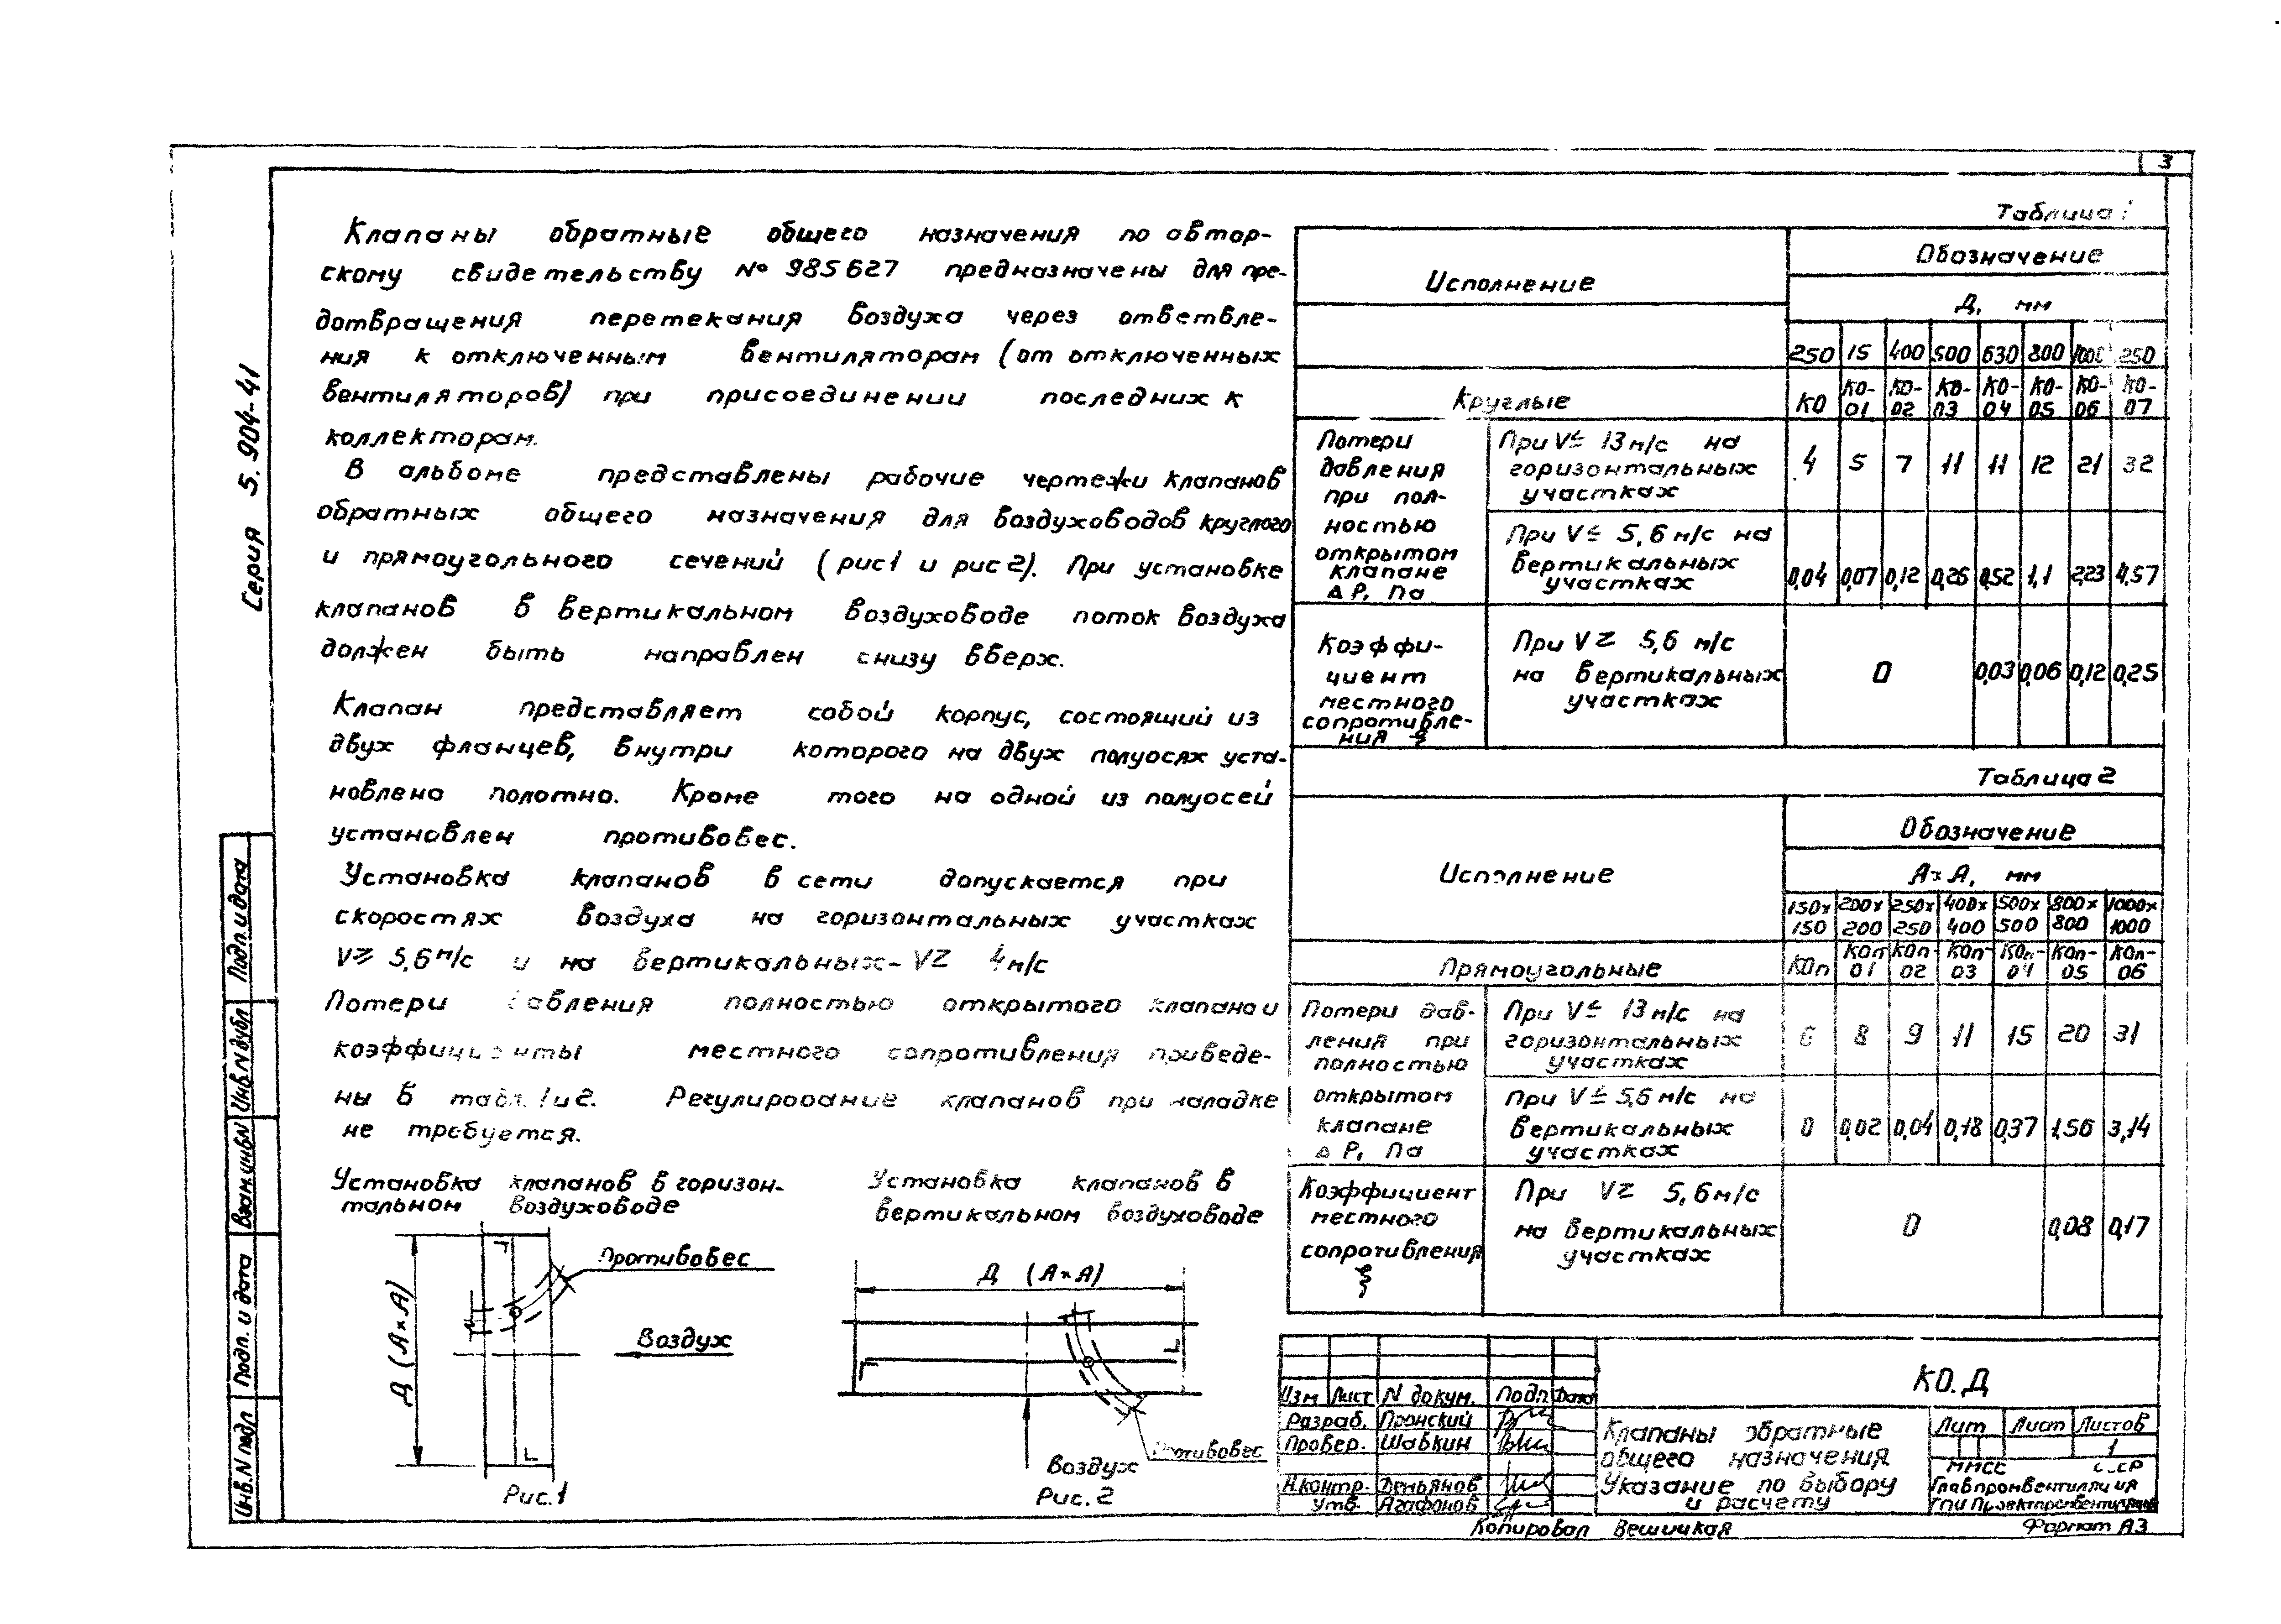 3
Серия 5.904-41
Клапаны обратные общего назначения по автор-
скому свидетельству № 985627 предназначены для пре-
дотвращения перетекания воздуха через ответвле-
ния к отключенным вентиляторам (от отключенных
вентиляторов) при присоединении последних к
коллекторам.
В альбоме представлены рабочие чертежи клапанов
обратных общего назначения для воздуховодов круглого
и прямоугольного сечений (рис1 и рис2). При установке
клапанов в вертикальном воздуховоде поток воздуха
должен быть направлен снизу вверх.
Клапан представляет собой корпус, состоящий из
двух фланцев, внутри которого на двух полуосях уста-
новлено полотно. Кроме того на одной из полуосей
установлен противовес.
Установка клапанов в сети допускается при
скоростях воздуха на горизонтальных участках
V≥ 5,6м/с и на вертикальных- V≥ 4м/с
Потери давления полностью открытого клапана и
коэффициенты местного сопротивления приведе-
ны в табл. 1 и 2. Регулирование клапанов при наладке
не требуется.
Установка клапанов в горизон-
тальном воздуховоде
Д (А×А)
Противовес
Воздух
Рис.1
Установка клапанов в
вертикальном воздуховоде
Д (А×А)
Противовес
Воздух
Рис.2
Таблица 1
Исполнение Обозначение
Д, мм
250 15 400 500 630 800 1000 250
Круглые КО КО-01 КО-02 КО-03 КО-04 КО-05 КО-06 КО-07
Потери
давления
при пол-
ностью
открытом
клапане
Δ Р, Па
При V≤ 13м/с на
горизонтальных
участках
4 5 7 11 11 12 21 32
При V≤ 5,6м/с на
вертикальных
участках
0,04 0,07 0,12 0,26 0,52 1,1 2,23 4,57
Коэффи-
циент
местного
сопротивле-
ния ξ
При V≥ 5,6 м/с
на вертикальных
участках
0 0,03 0,06 0,12 0,25
Таблица 2
Исполнение Обозначение
А×А, мм
150х150 200х200 250х250 400х400 500х500 800х800 1000х1000
Прямоугольные КОп КОп-01 КОп-02 КОп-03 КОп-04 КОп-05 КОп-06
Потери дав-
ления при
полностью
открытом
клапане
Δ Р, Па
При V≤ 13м/с на
горизонтальных
участках
6 8 9 11 15 20 31
При V≤ 5,6м/с на
вертикальных
участках
0 0,02 0,04 0,18 0,37 1,56 3,14
Коэффициент
местного
сопротивления
ξ
При V≥ 5,6м/с
на вертикальных
участках
0 0,08 0,17
Подп. и дата
Инв.N дубл
Взам.инв.N
Подп. и дата
Инв.N подл
Изм Лист N докум. Подп. Дата
Разраб. Пронский
Провер. Шавкин
Н.контр. Демьянов
Утв. Агафонов
КО.Д
Клапаны обратные
общего назначения
Указание по выбору
и расчету
Лит Лист Листов
1
ММСС СССР
Главпромвентиляция
ГПИ Проектпромвентиляция
Копировал
Формат А3